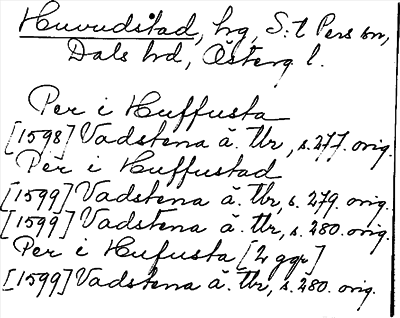 Huvudstad, hg, S:t Pers sn,
Dals hd, Österg l.
Per i Huffusta
[1598] Vadstena ä. Tbr, s. 277. orig.
Per i Huffustad
[1599] Vadstena ä. Tbr, s. 279. orig.
[1599] Vadstena ä. Tbr, s. 280. orig.
Per i Hufusta [2 ggr]
[1599] Vadstena ä. Tbr, s. 280. orig.